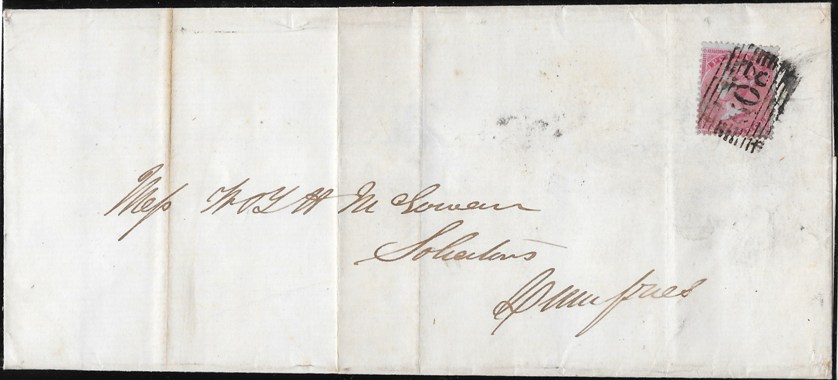 Mess W & H McGowan
Solicitors
Dumfries